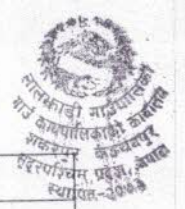 लालझाडी गाउँपालिका
गाउँ कार्यपालिकाको कार्यालय
शंकरपुर कञ्चनपुर
सुदूरपश्चिम प्रदेश, नेपाल
स्थापित-२०७३